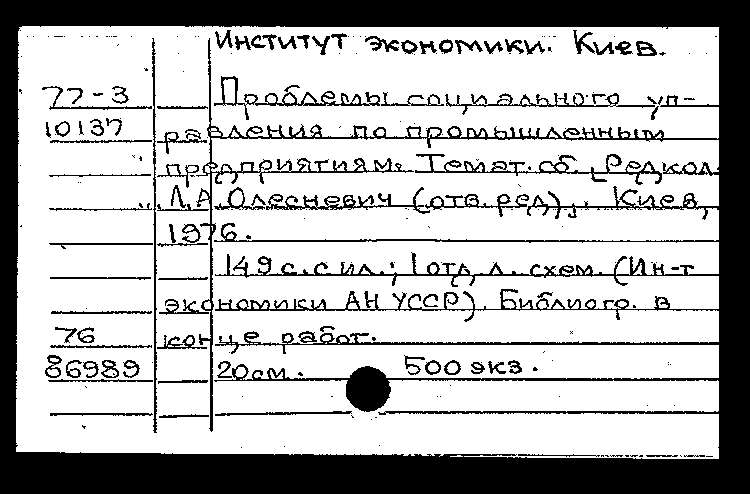 Институт экономики. Киев.
77-3 Проблемы социального уп-
10137 равления по промышленным
предприятиям. Темат. сб. [Редкол.
... Л.А. Олесневич (отв. ред)]. Киев,
1976.
149 с. с ил.; 1 отд. л. схем. (Ин-т
экономики АН УССР). Библиогр. в
76 конце работ.
86989 20 см. 500 экз.